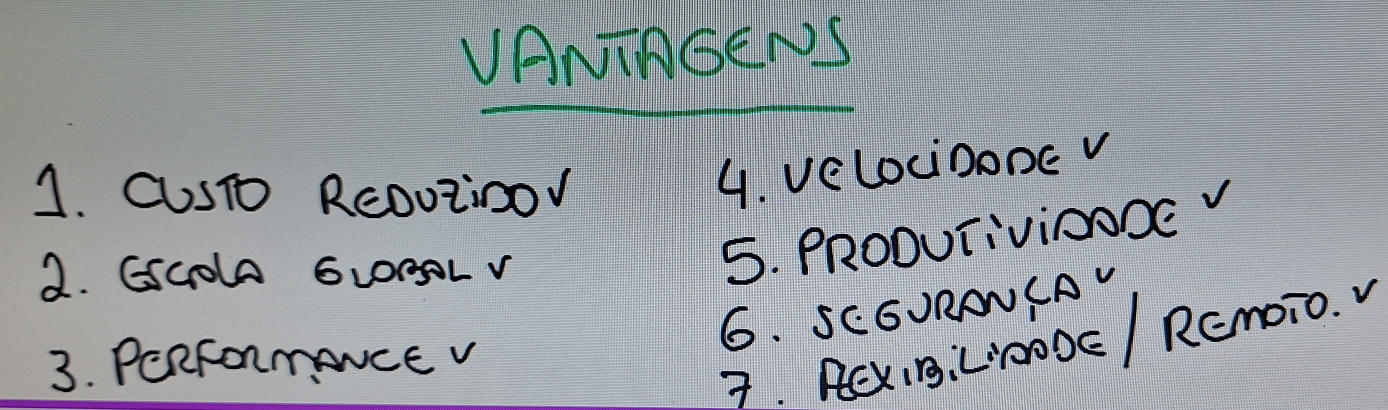 VANTAGENS
1. CUSTO REDUZIDO ✓
2. ESCALA GLOBAL ✓
3. PERFORMANCE ✓
4. VELOCIDADE ✓
5. PRODUTIVIDADE ✓
6. SEGURANÇA ✓
7. FLEXIBILIDADE / REMOTO. ✓